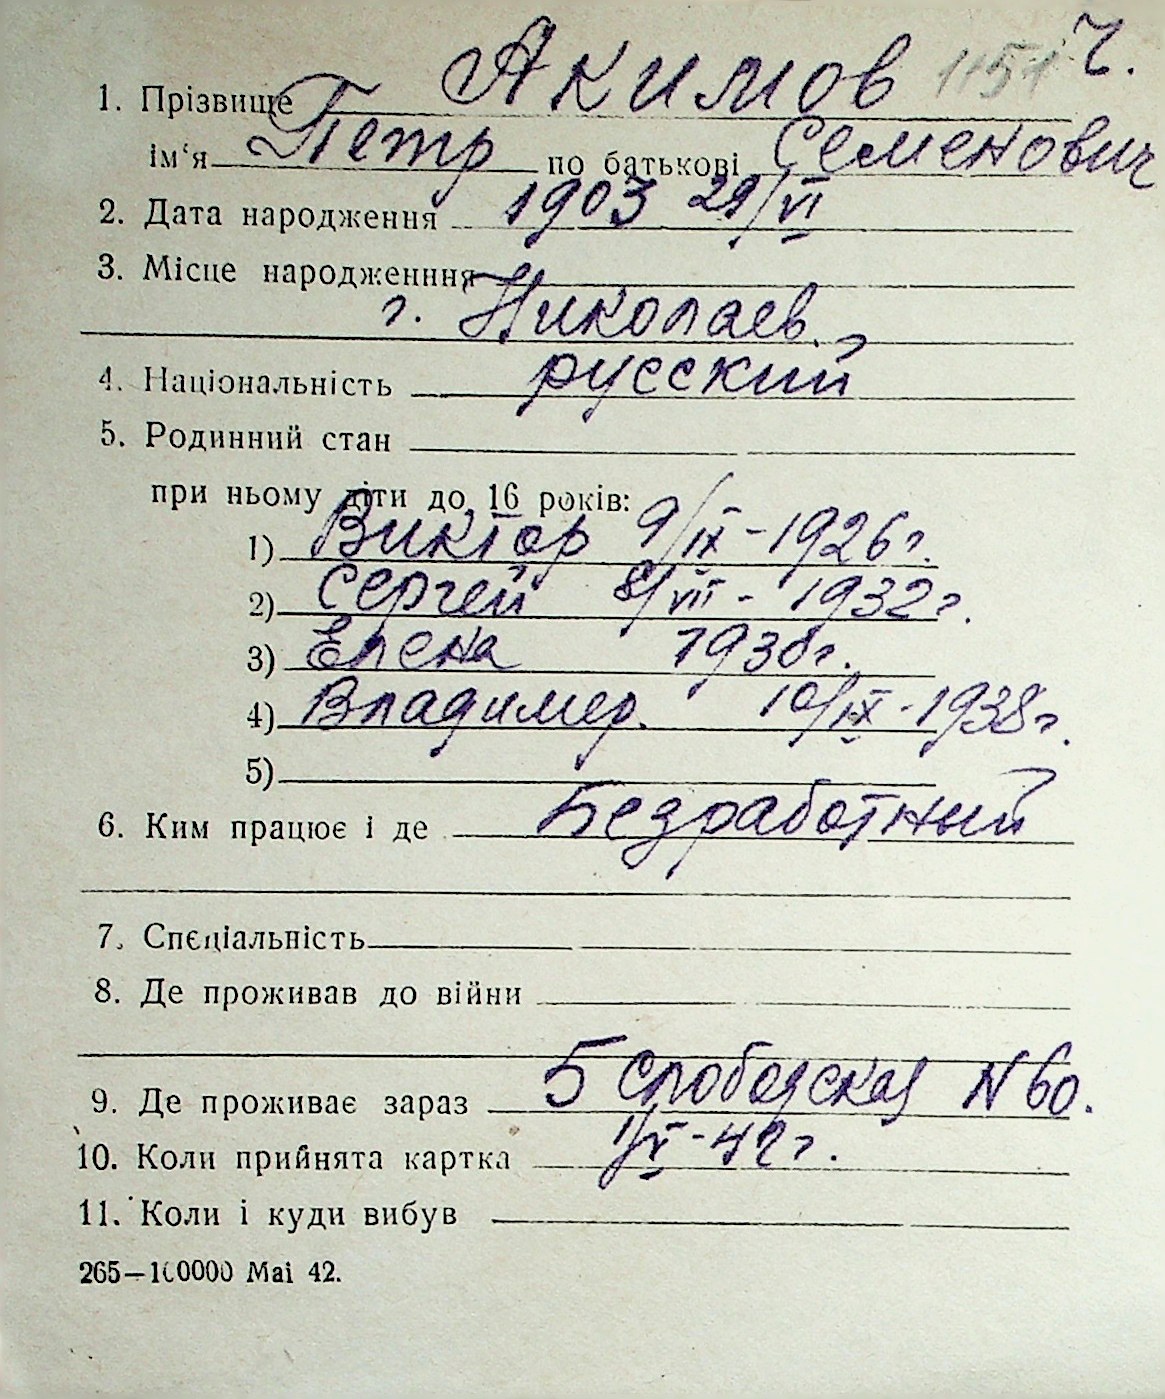 Ч.
1. Прізвище Акимов 1151
ім‘я Петр по батькові Семенович
2. Дата народження 1903 29/VI
3. Місце народженння
г. Николаев.
4. Національність русский
5. Родинний стан
при ньому діти до 16 років:
1) Виктор 9/IX-1926г.
2) Сергей 8/VII - 1932г.
3) Елена 1936г.
4) Владимер. 10/IX-1938г.
5)
6. Ким працює і де Безработный
7. Спеціальність
8. Де проживав до війни
9. Де проживає зараз 5 Слободская N 60.
10. Коли прийнята картка 1/V-42г.
11. Коли і куди вибув
265—100000 Маі 42.